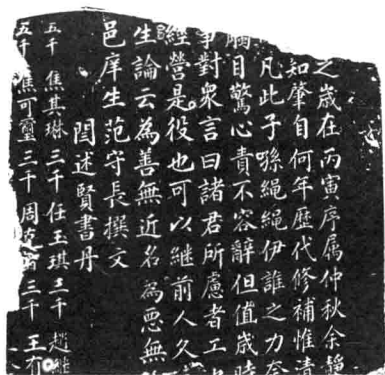 之歲在丙寅序属仲秋余靜
知肇自何年歷代修補惟清
凡此子緜繩繩伊誰之力奈
觸目驚心責不容辭但值歲時
爭對衆言曰諸君所慮者工
經營是役也可以継前人久
生論云為善無近名為惡無
邑庠生范守長撰文
閆述賢書丹
五千 焦其琳 三千 任玉琪 三千 趙
五千 焦可璽 三千 周 三千 王有